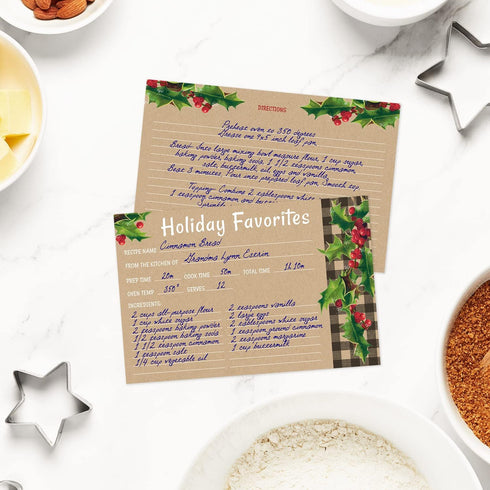 DIRECTIONS
Preheat oven to 350 degrees
Grease one 9x5 inch loaf pan.
Bread: Into large mixing bowl measure flour, 1 cup sugar
baking powder, baking soda, 1 1/2 teaspoons cinnamon
salt, buttermilk, oil, eggs and vanilla.
Beat 3 minutes. Pour into prepared loaf pan. Smooth top.
Topping: Combine 2 tablespoons white
Holiday Favorites
RECIPE NAME Cinnamon Bread
FROM THE KITCHEN OF Grandma Lynn Estrin
PREP TIME 20m COOK TIME 50m TOTAL TIME 1h 10m
OVEN TEMP 350° SERVES 12
INGREDIENTS:
2 cups all-purpose flour
1 cup white sugar
2 teaspoons baking powder
1/2 teaspoon baking soda
1 1/2 teaspoons cinnamon
1 teaspoon salt
1/4 cup vegetable oil
2 teaspoons vanilla
2 large eggs
2 tablespoons white sugar
1 teaspoon ground cinnamon
2 teaspoons margarine
1 cup buttermilk